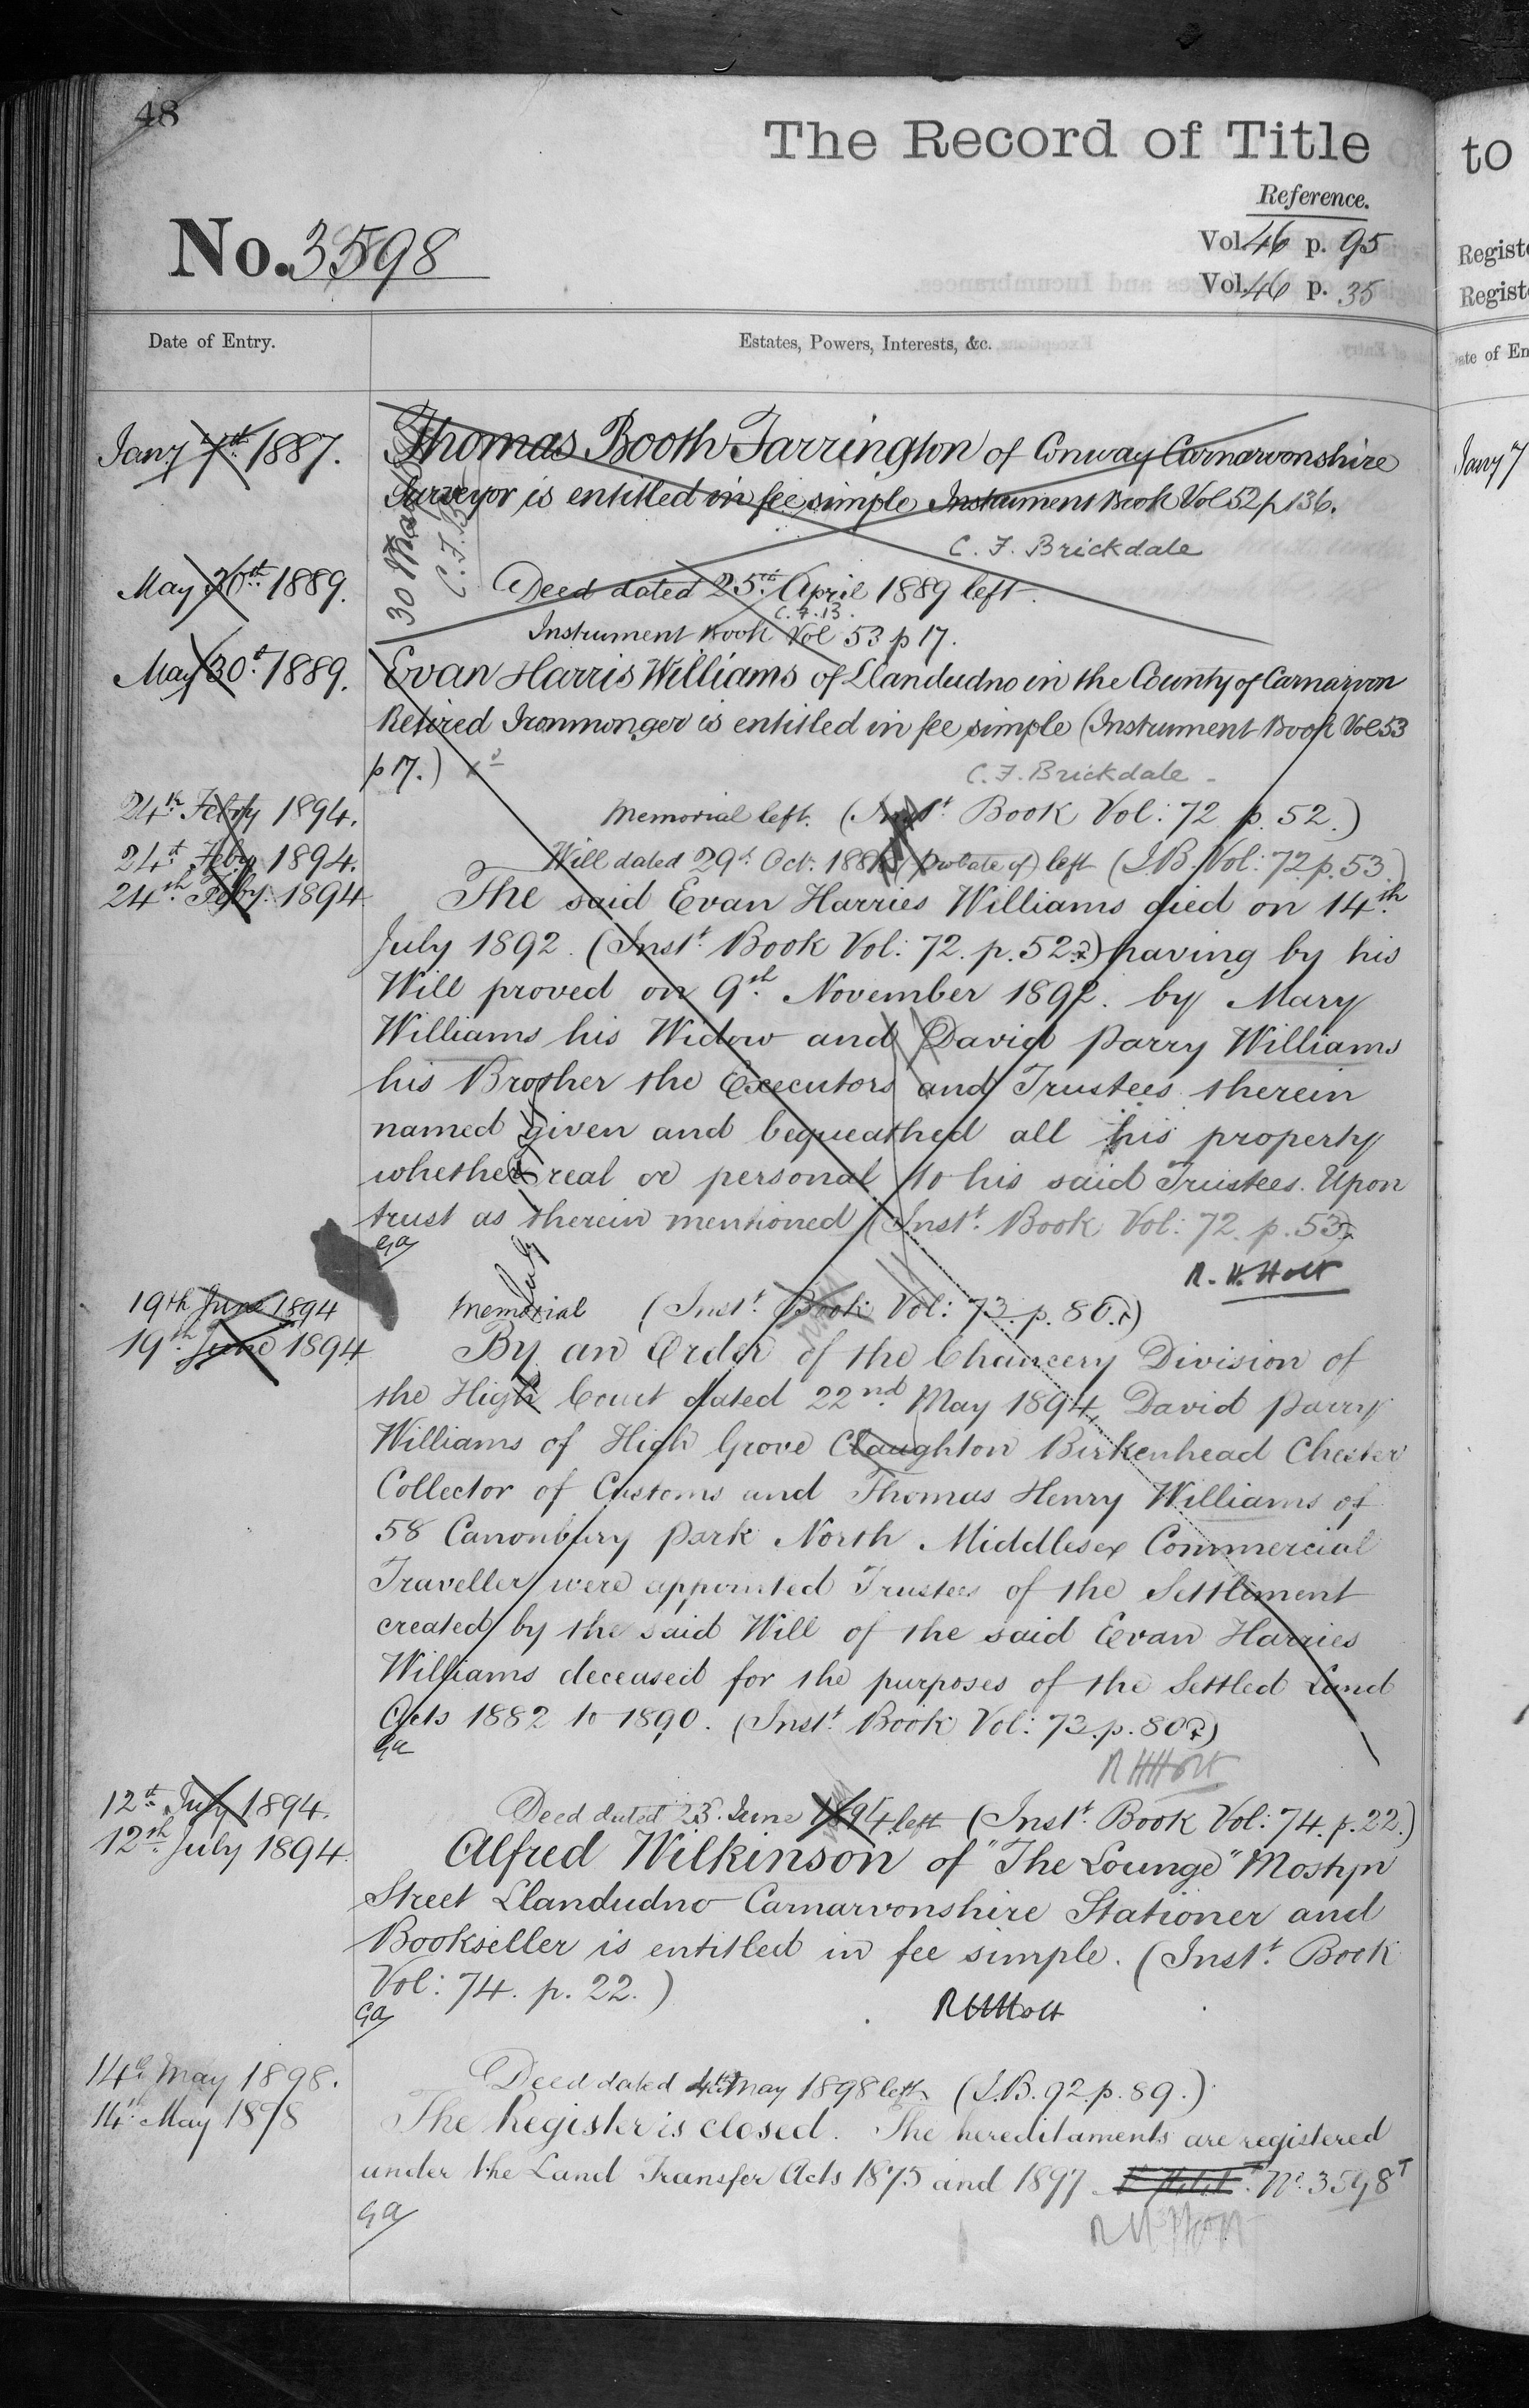 48
The Record of Title
to
Reference.
No. 3598
Vol. 46 p. 95
Vol. 46 p. 35
Date of Entry.
Estates, Powers, Interests, &c.
Jany 7th 1887.
Thomas Booth Farrington of Conway Carnarvonshire
Surveyor is entitled in fee simple Instrument Book Vol 52 p 136.
C. F. Brickdale
May 30th 1889.
Deed dated 25th April 1889 left.
C.F.B.
Instrument Book Vol 53 p 17.
May 30th 1889.
Evan Harris Williams of Llandudno in the County of Carnarvon
Retired Ironmonger is entitled in fee simple (Instrument Book Vol 53
p 17.)
C. F. Brickdale
24th Febry 1894.
Memorial left. (Inst. Book Vol: 72 p. 52.)
24th Feby 1894.
Will dated 29th Oct. (Probate of) left (I.B. Vol: 72 p. 53.)
24th Feby. 1894
The said Evan Harries Williams died on 14th
July 1892. (Inst. Book Vol: 72. p. 52.) having by his
Will proved on 9th November 1892. by Mary
Williams his Widow and David Parry Williams
his Brother the Executors and Trustees therein
named given and bequeathed all his property
whether real or personal to his said Trustees. Upon
trust as therein mentioned (Inst. Book Vol: 72. p. 53)
Ga
R. H. Holt
19th June 1894
Memorial (Inst. Book Vol: 73. p. 80.)
19th June 1894
By an Order of the Chancery Division of
the High Court dated 22nd May 1894, David Parry
Williams of High Grove Claughton Birkenhead Chester
Collector of Customs and Thomas Henry Williams of
58 Canonbury Park North Middlesex Commercial
Traveller were appointed Trustees of the Settlement
created by the said Will of the said Evan Harries
Williams deceased for the purposes of the Settled Land
Acts 1882 to 1890. (Inst. Book Vol: 73. p. 80)
Ga
R H Holt
12th July 1894.
Deed dated 23 June 1894 left (Inst. Book Vol: 74. p. 22.)
12th July 1894.
Alfred Wilkinson of "The Lounge" Mostyn
Street Llandudno Carnarvonshire Stationer and
Bookseller is entitled in fee simple. (Inst. Book
Vol: 74. p. 22.)
Ga
R H Holt
14th May 1898.
Deed dated 4th May 1898 left (I.B. 92. p. 89.)
14th May 1898
The Register is closed. The hereditaments are registered
under the Land Transfer Acts 1875 and 1897 No. 3598T
Ga
R H Holt
Jany 7